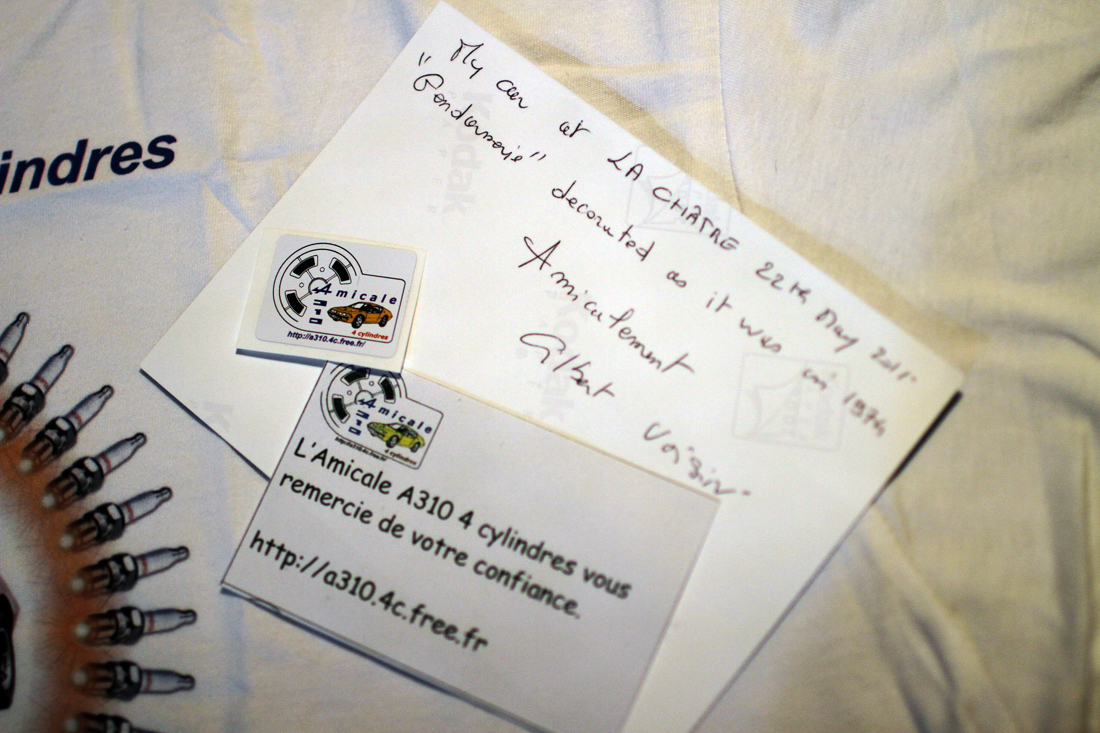 indres
My car at LA CHATRE 22th May 2011
"Gendarmerie" decorated as it was in 1974
Amicalement
Gilbert Voisin
Kodak
Amicale
A310
4 cylindres
http://a310.4c.free.fr/
Amicale
A310
4 cylindres
http://a310.4c.free.fr/
L'Amicale A310 4 cylindres vous
remercie de votre confiance.
http://a310.4c.free.fr